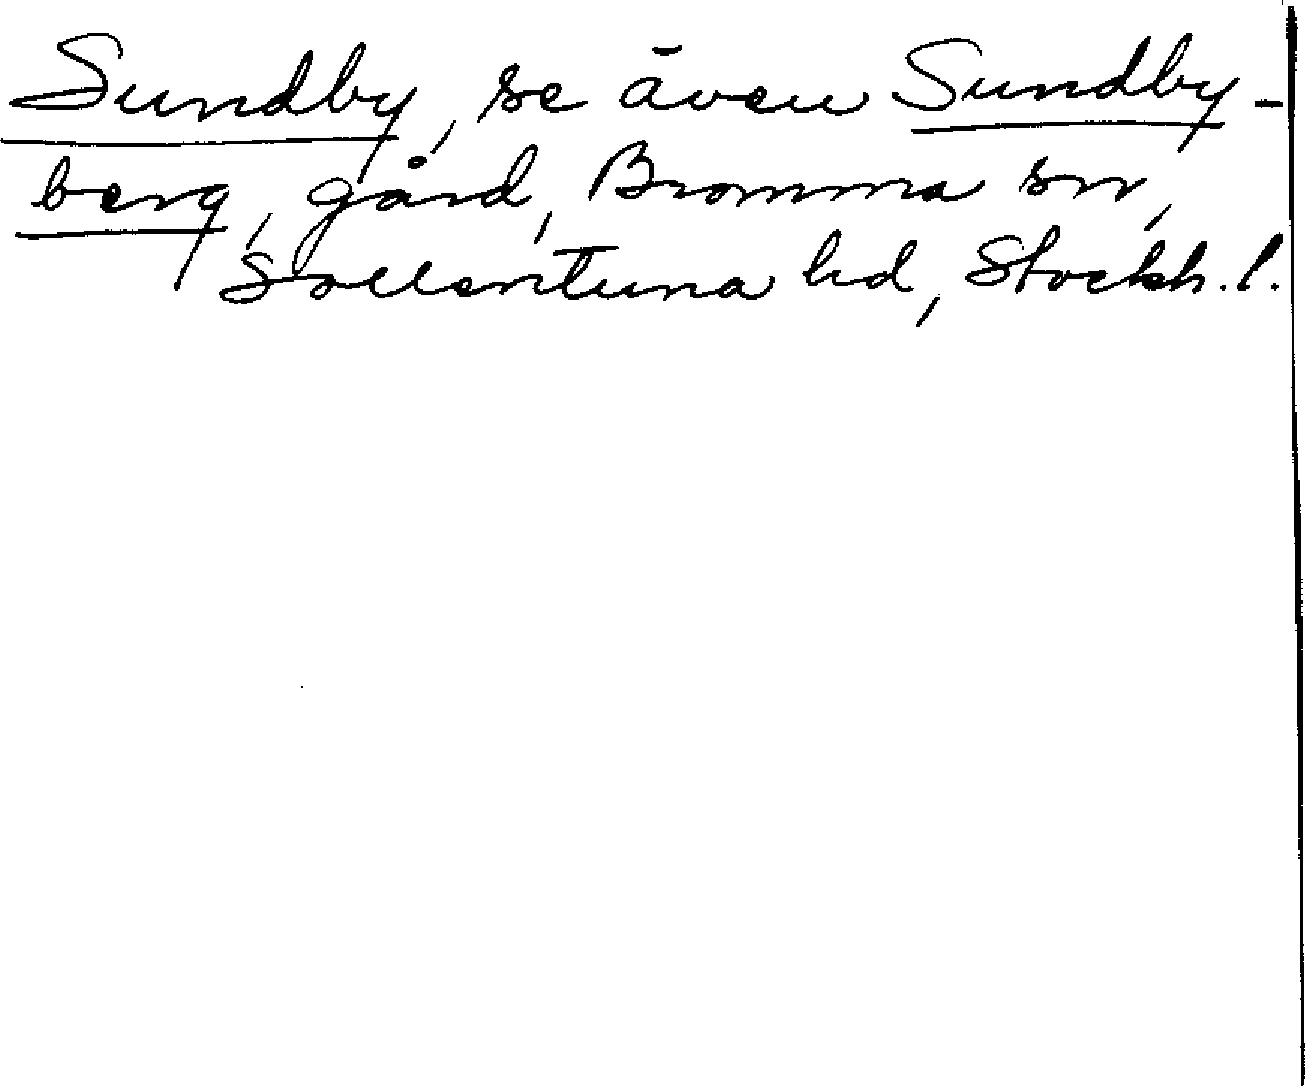 Sundby, se även Sundby-
berg, gård, Bromma sn,
Sollentuna hd, Stockh. l.